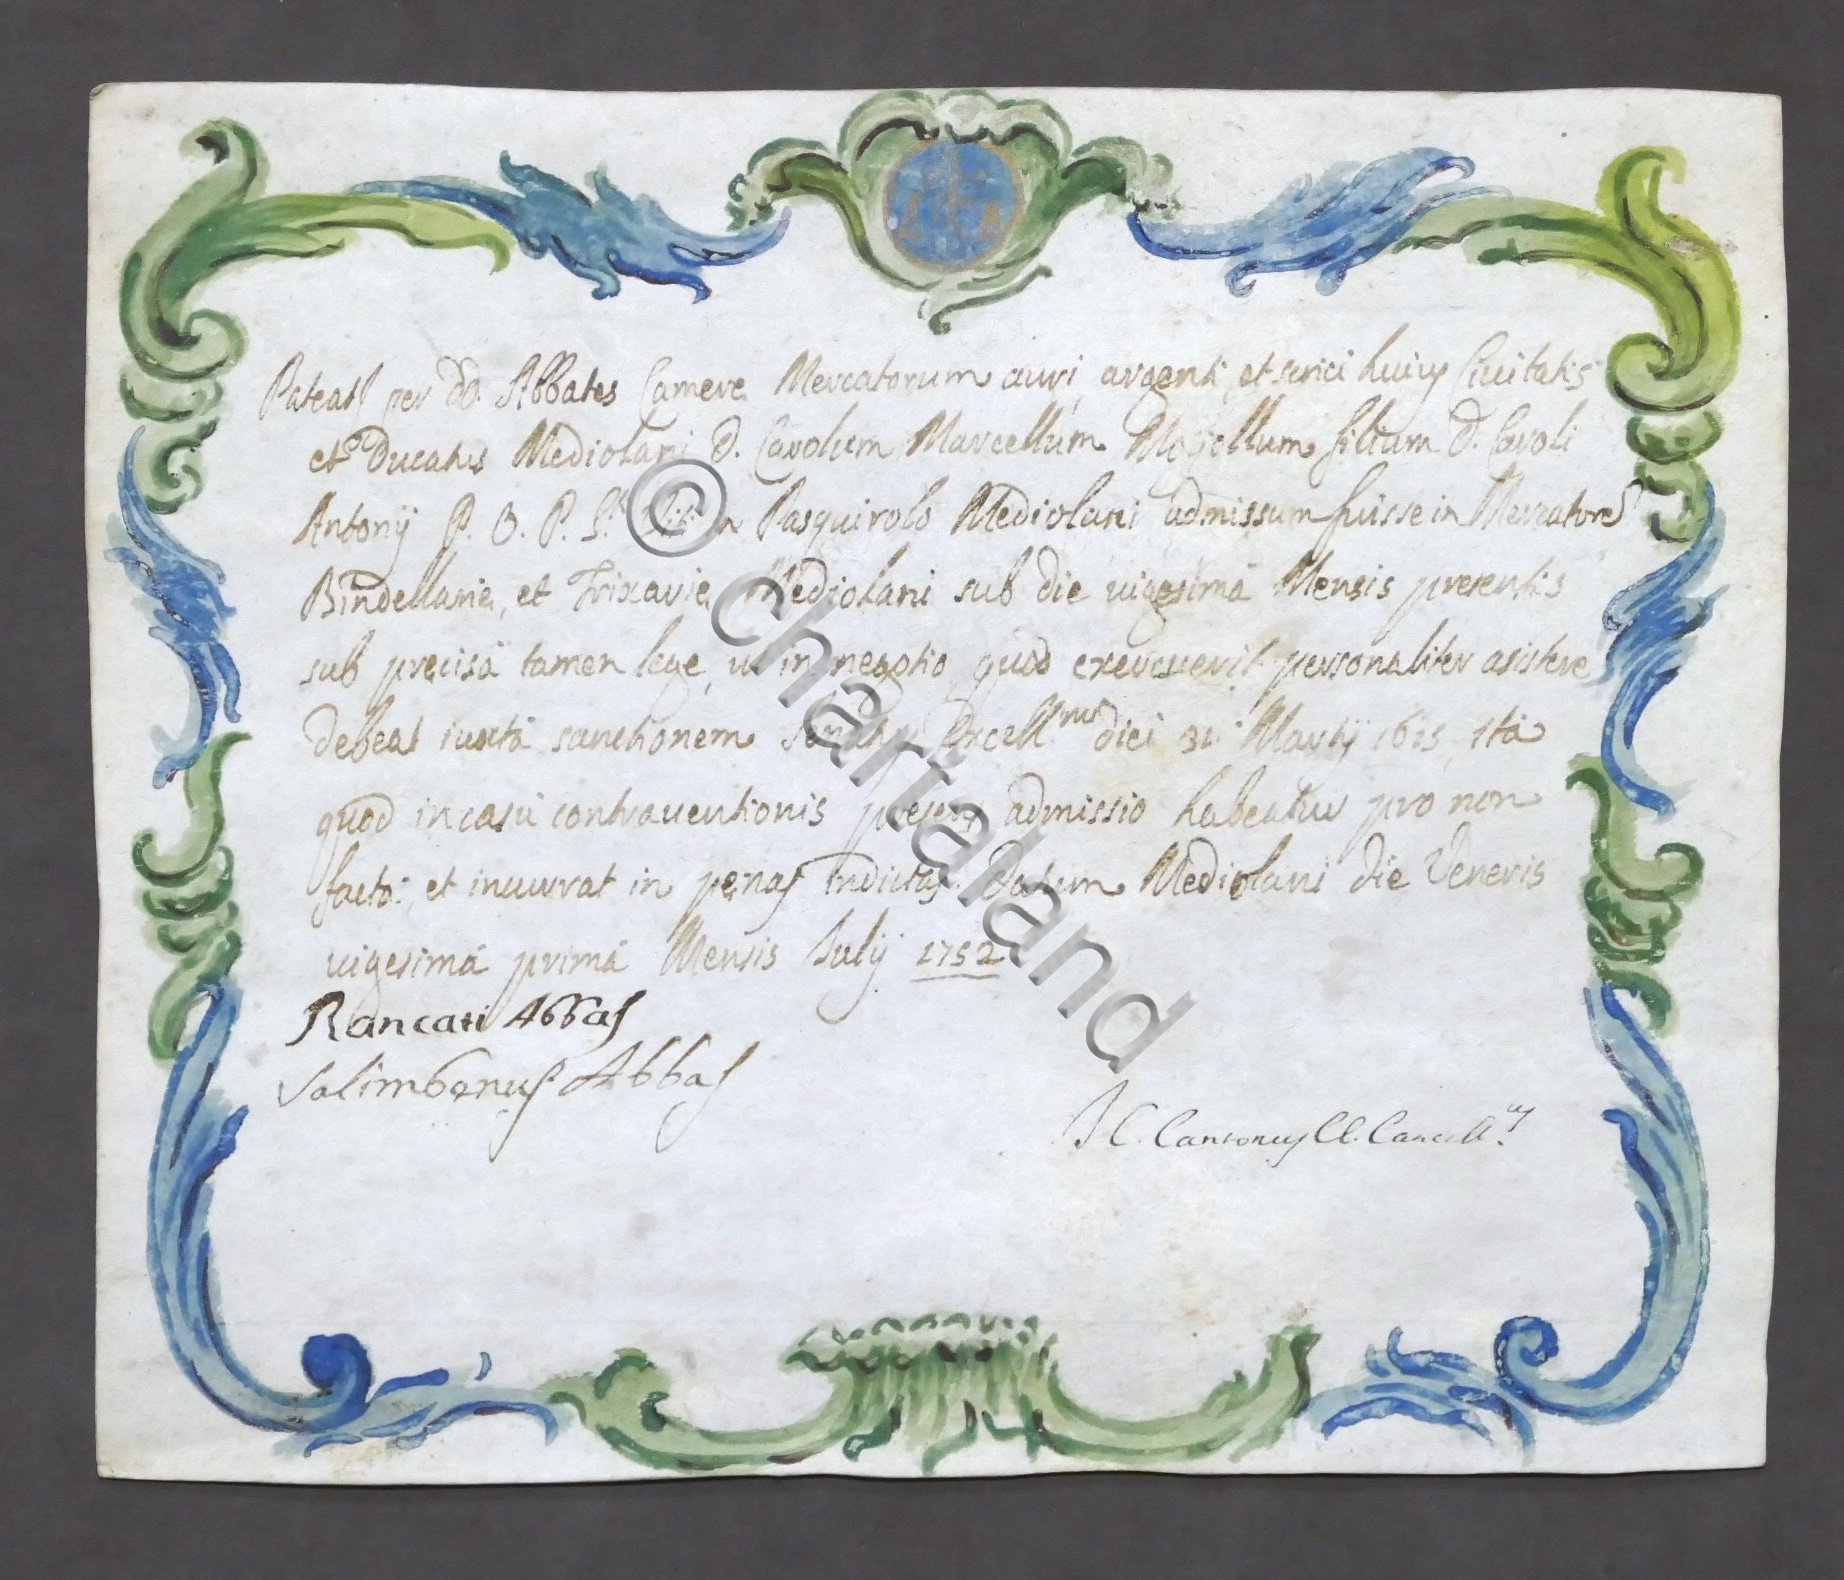 Pateat per DD. Abbates Camere Mercatorum auri, argenti, et serici huius Civitatis
et Ducatus Mediolani D. Carolum Marcellum filium D. Caroli
Antonij P. O. P. S. in Pasquirolo Mediolani admissum fuisse in Mercatore
Bindellarie, et Trixarie Mediolani sub die vigesimá Mensis presentis
sub precisá tamen lege, ut in negotio quod exercuerit personaliter asistere
debeat iuxtá sanctionem Senatus Excell.mi diei 31 Martij Ita
quod in casu contraventionis presens admissio habeatur pro non
factá, et incurrat in penas indictas. Datum Mediolani die Veneris
vigesimá primá Mensis Julij 1752
Rancati Abbas
Salimbenus Abbas
J C. Cantonus Cancell.us
© chartaland